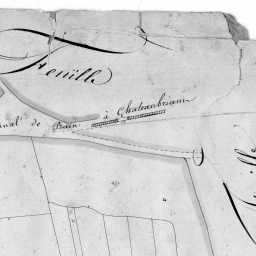 Feuille
nal de Bain à Chateaubriant